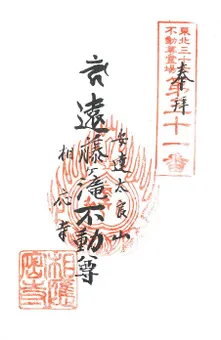 東北三十六
不動尊霊場
第三十一番
奉拝
安達太良山
遠藤ヶ滝不動尊
相応寺